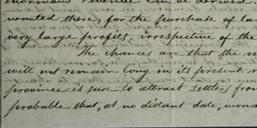 enormous revenue can be derived
wanted there, for the purchase of la
very large profits, irrespective of the
The chances are that the m
will not remain long in its present
province is sure to attract settle from
probable that, at no distant date,